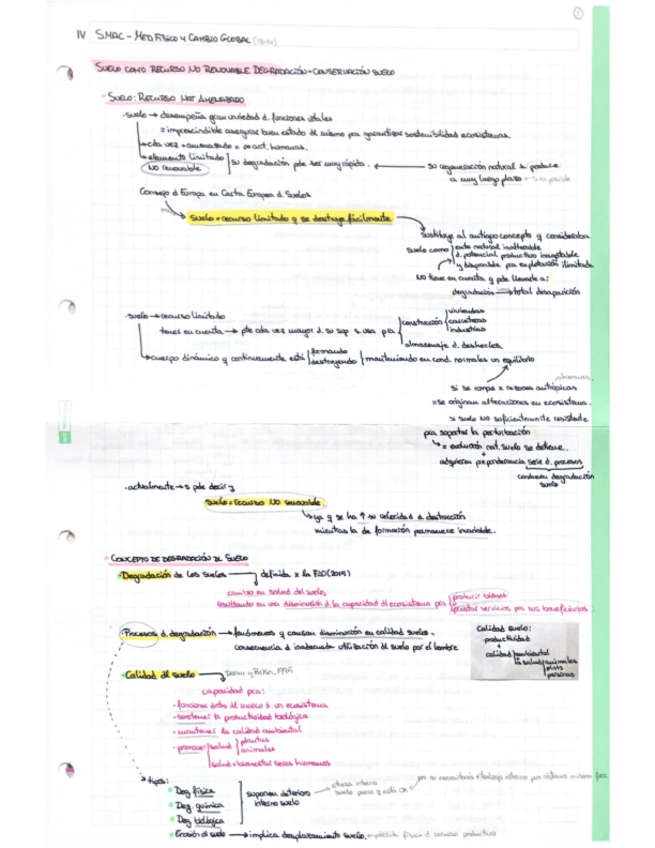 IV SMAC - MED. FÍSICO Y CAMBIO GLOBAL
SUELO COMO RECURSO NO RENOVABLE DEGRADACIÓN + CONSERVACIÓN SUELO
· SUELO: RECURSO NAT AMENAZADO
· suelo → desempeña gran variedad d. funciones vitales
= imprescindible asegurar buen estado dl mismo pra garantizar sostenibilidad ecosistemas.
→ cda vez + amenazado = x act. humanas.
→ elemento limitado
NO renovable
su degradación pde ser muy rápida. ← su regeneración natural s produce
a muy largo plazo
Consejo d Europa en Carta Europea d Suelos
suelo = recurso limitado q se destruye fácilmente
sustituye al antiguo concepto q consideraba
suelo como
ente natural inalterable
d. potencial productivo inagotable
y disponible pra explotación ilimitada
NO tiene en cuenta q pde llevarle a:
degradación → total desaparición
· suelo → recurso limitado
tener en cuenta → pte cda vez mayor d. su sup s. usa pra
construcción
viviendas
carreteras
industrias
almacenaje d. deshechos.
→ cuerpo dinámico q continuamente está
formando
destruyendo
manteniendo en cond. normales un equilibrio
humanas.
si se rompe x razones antrópicas
= se originan alteraciones en ecosistema.
si suelo NO suficientemente resistente
pra soportar la perturbación
↳ = evolución nat. suelo se detiene.
+
adquieren preponderancia serie d. procesos
conducen degradación
suelo
· actualmente → s pde decir q
suelo = recurso NO renovable.
↳ ya q se ha ↑ su velocidad d. destrucción
mientras la de formación permanece invariable.
· CONCEPTO DE DEGRADACIÓN DE SUELO
· Degradación de los suelos → definida x la FAO (2015)
cambio en salud del suelo,
resultando en una disminución d. la capacidad dl ecosistema pra
producir bienes
prestar servicios pra sus beneficiarios
· Procesos d. degradación → fenómenos q causan disminución en calidad suelos.
consecuencia d inadecuada utilización dl suelo por el hombre
Calidad suelo:
· productividad
+
calidad ambiental
la salud
animales
plants
personas
· Calidad dl suelo → Doran y Parkin, 1995
capacidad pra:
- funcionar dntro dl marco d un ecosistema
- sostener la productividad biológica
- mantener la calidad ambiental
- promover
salud
plantas
animales
salud + bienestar seres humanos
→ tipos:
· Deg. física
· Deg. química
· Deg. biológica
suponen deterioro
interno suelo
stress interno
· Erosión dl suelo → implica desplazamiento suelo. = pérdida física d recurso productivo